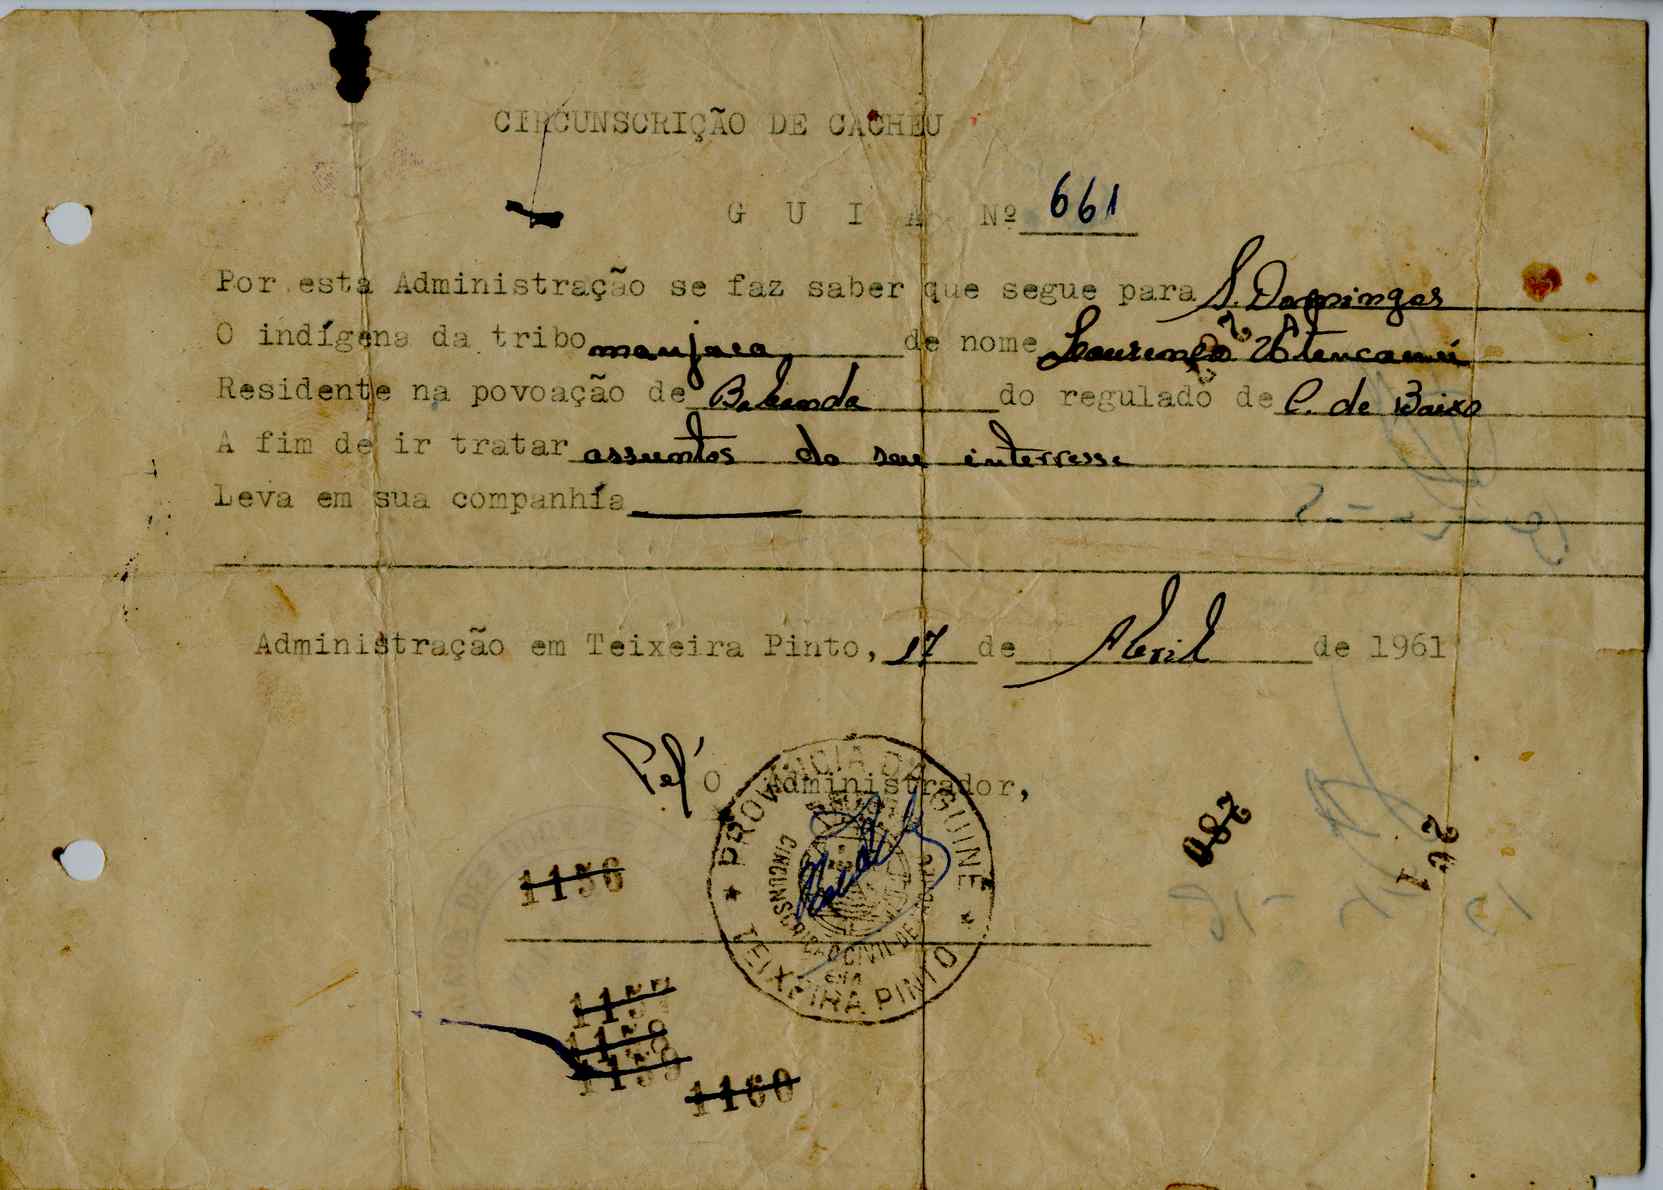 CIRCUNSCRIÇÃO DE CACHEU
G U I A Nº 661
Por esta Administração se faz saber que segue para S. Domingos
O indígena da tribo manjaca de nome Lourenço
Residente na povoação de do regulado de C. de Baixo
A fim de ir tratar assuntos do seu interresse
Leva em sua companhia
Administração em Teixeira Pinto, 17 de Abril de 1961
Pel' O Administrador,
PROVINCIA DA GUINE
TEIXEIRA PINTO
1156
1157
1158
1159
1160
087